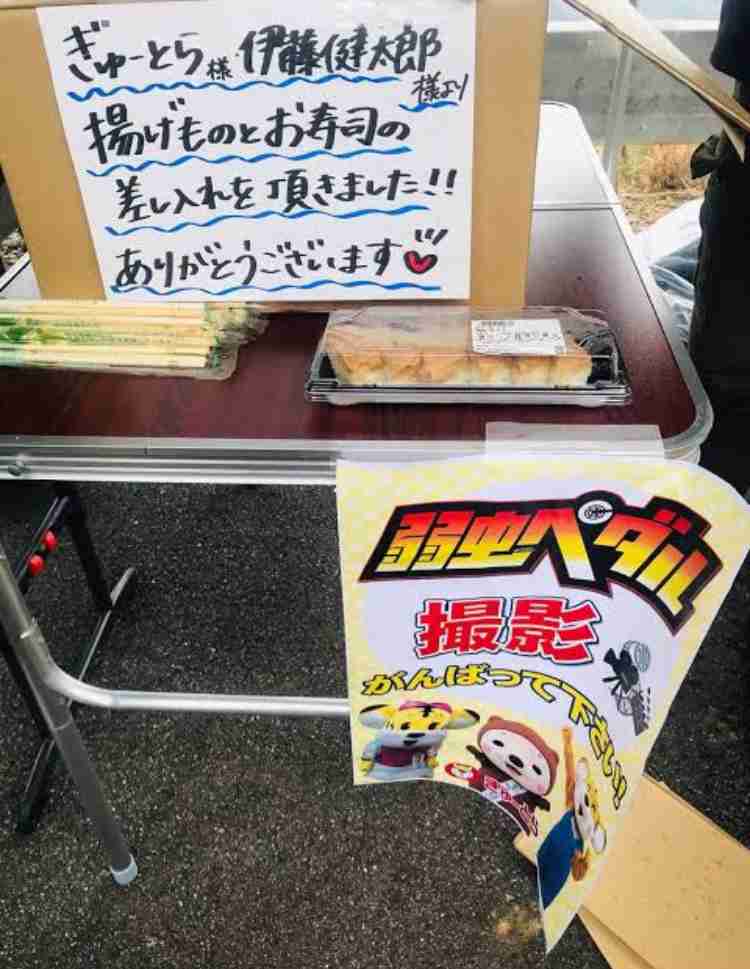 ぎゅーとら様 伊藤健太郎
様より
揚げものとお寿司の
差し入れを頂きました!!
ありがとうございます
弱虫ペダル
撮影
がんばって下さい!!
ぎゅーとら